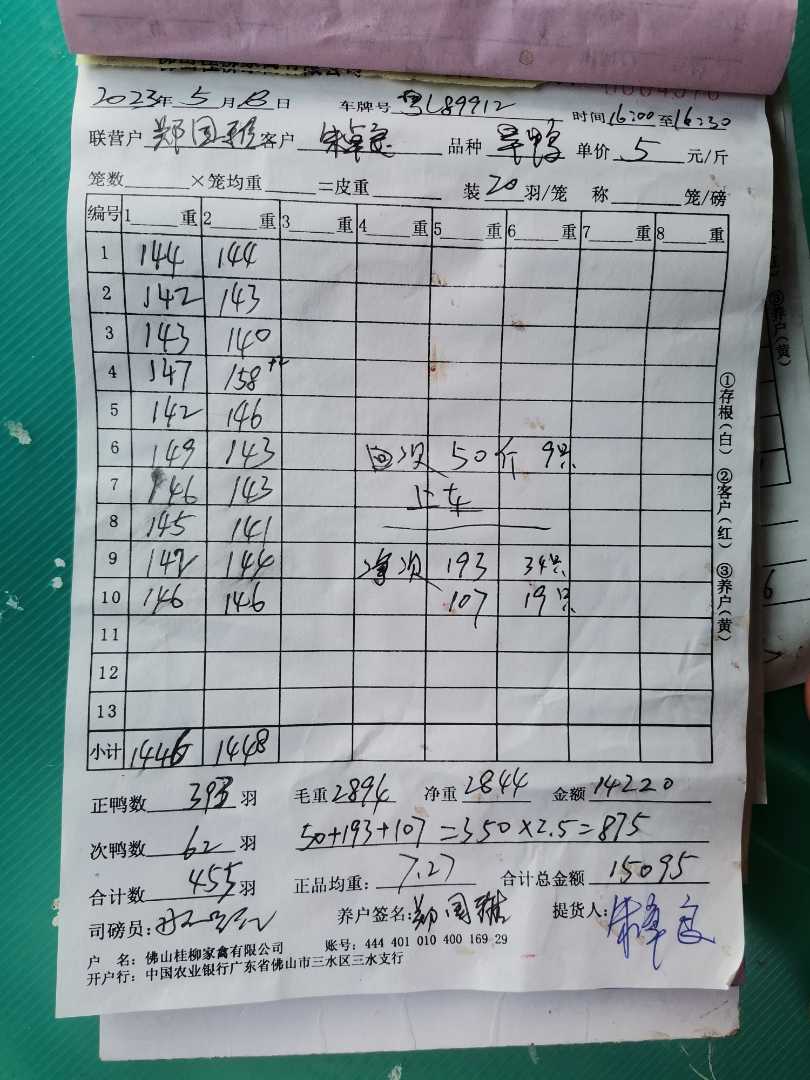 2023年5月13日 车牌号 粤L89912 时间16:00至16:30
联营户 郑国雅 客户 品种 旱鸭 单价 5 元/斤
笼数 ×笼均重 =皮重 装 20 羽/笼 称 笼/磅
编号 1 重 2 重 3 重 4 重 5 重 6 重 7 重 8 重
1 144 144
2 142 143
3 143 140
4 147 158
5 142 146
6 149 143 回次 50斤 9只
7 146 143 上车
8 145 141
9 142 144 次 193 34只
10 146 146 107 19只
11
12
13
小计 1446 1448
正鸭数 393 羽 毛重 2894 净重 2844 金额 14220
次鸭数 62 羽 50+193+107=350×2.5=875
合计数 455 羽 正品均重: 7.27 合计总金额 15095
司磅员: 养户签名: 郑国雅 提货人:
户 名: 佛山桂柳家禽有限公司 账号: 444 401 010 400 169 29
开户行: 中国农业银行广东省佛山市三水区三水支行
①存根(白) ②客户(红) ③养户(黄)
③养户(黄)